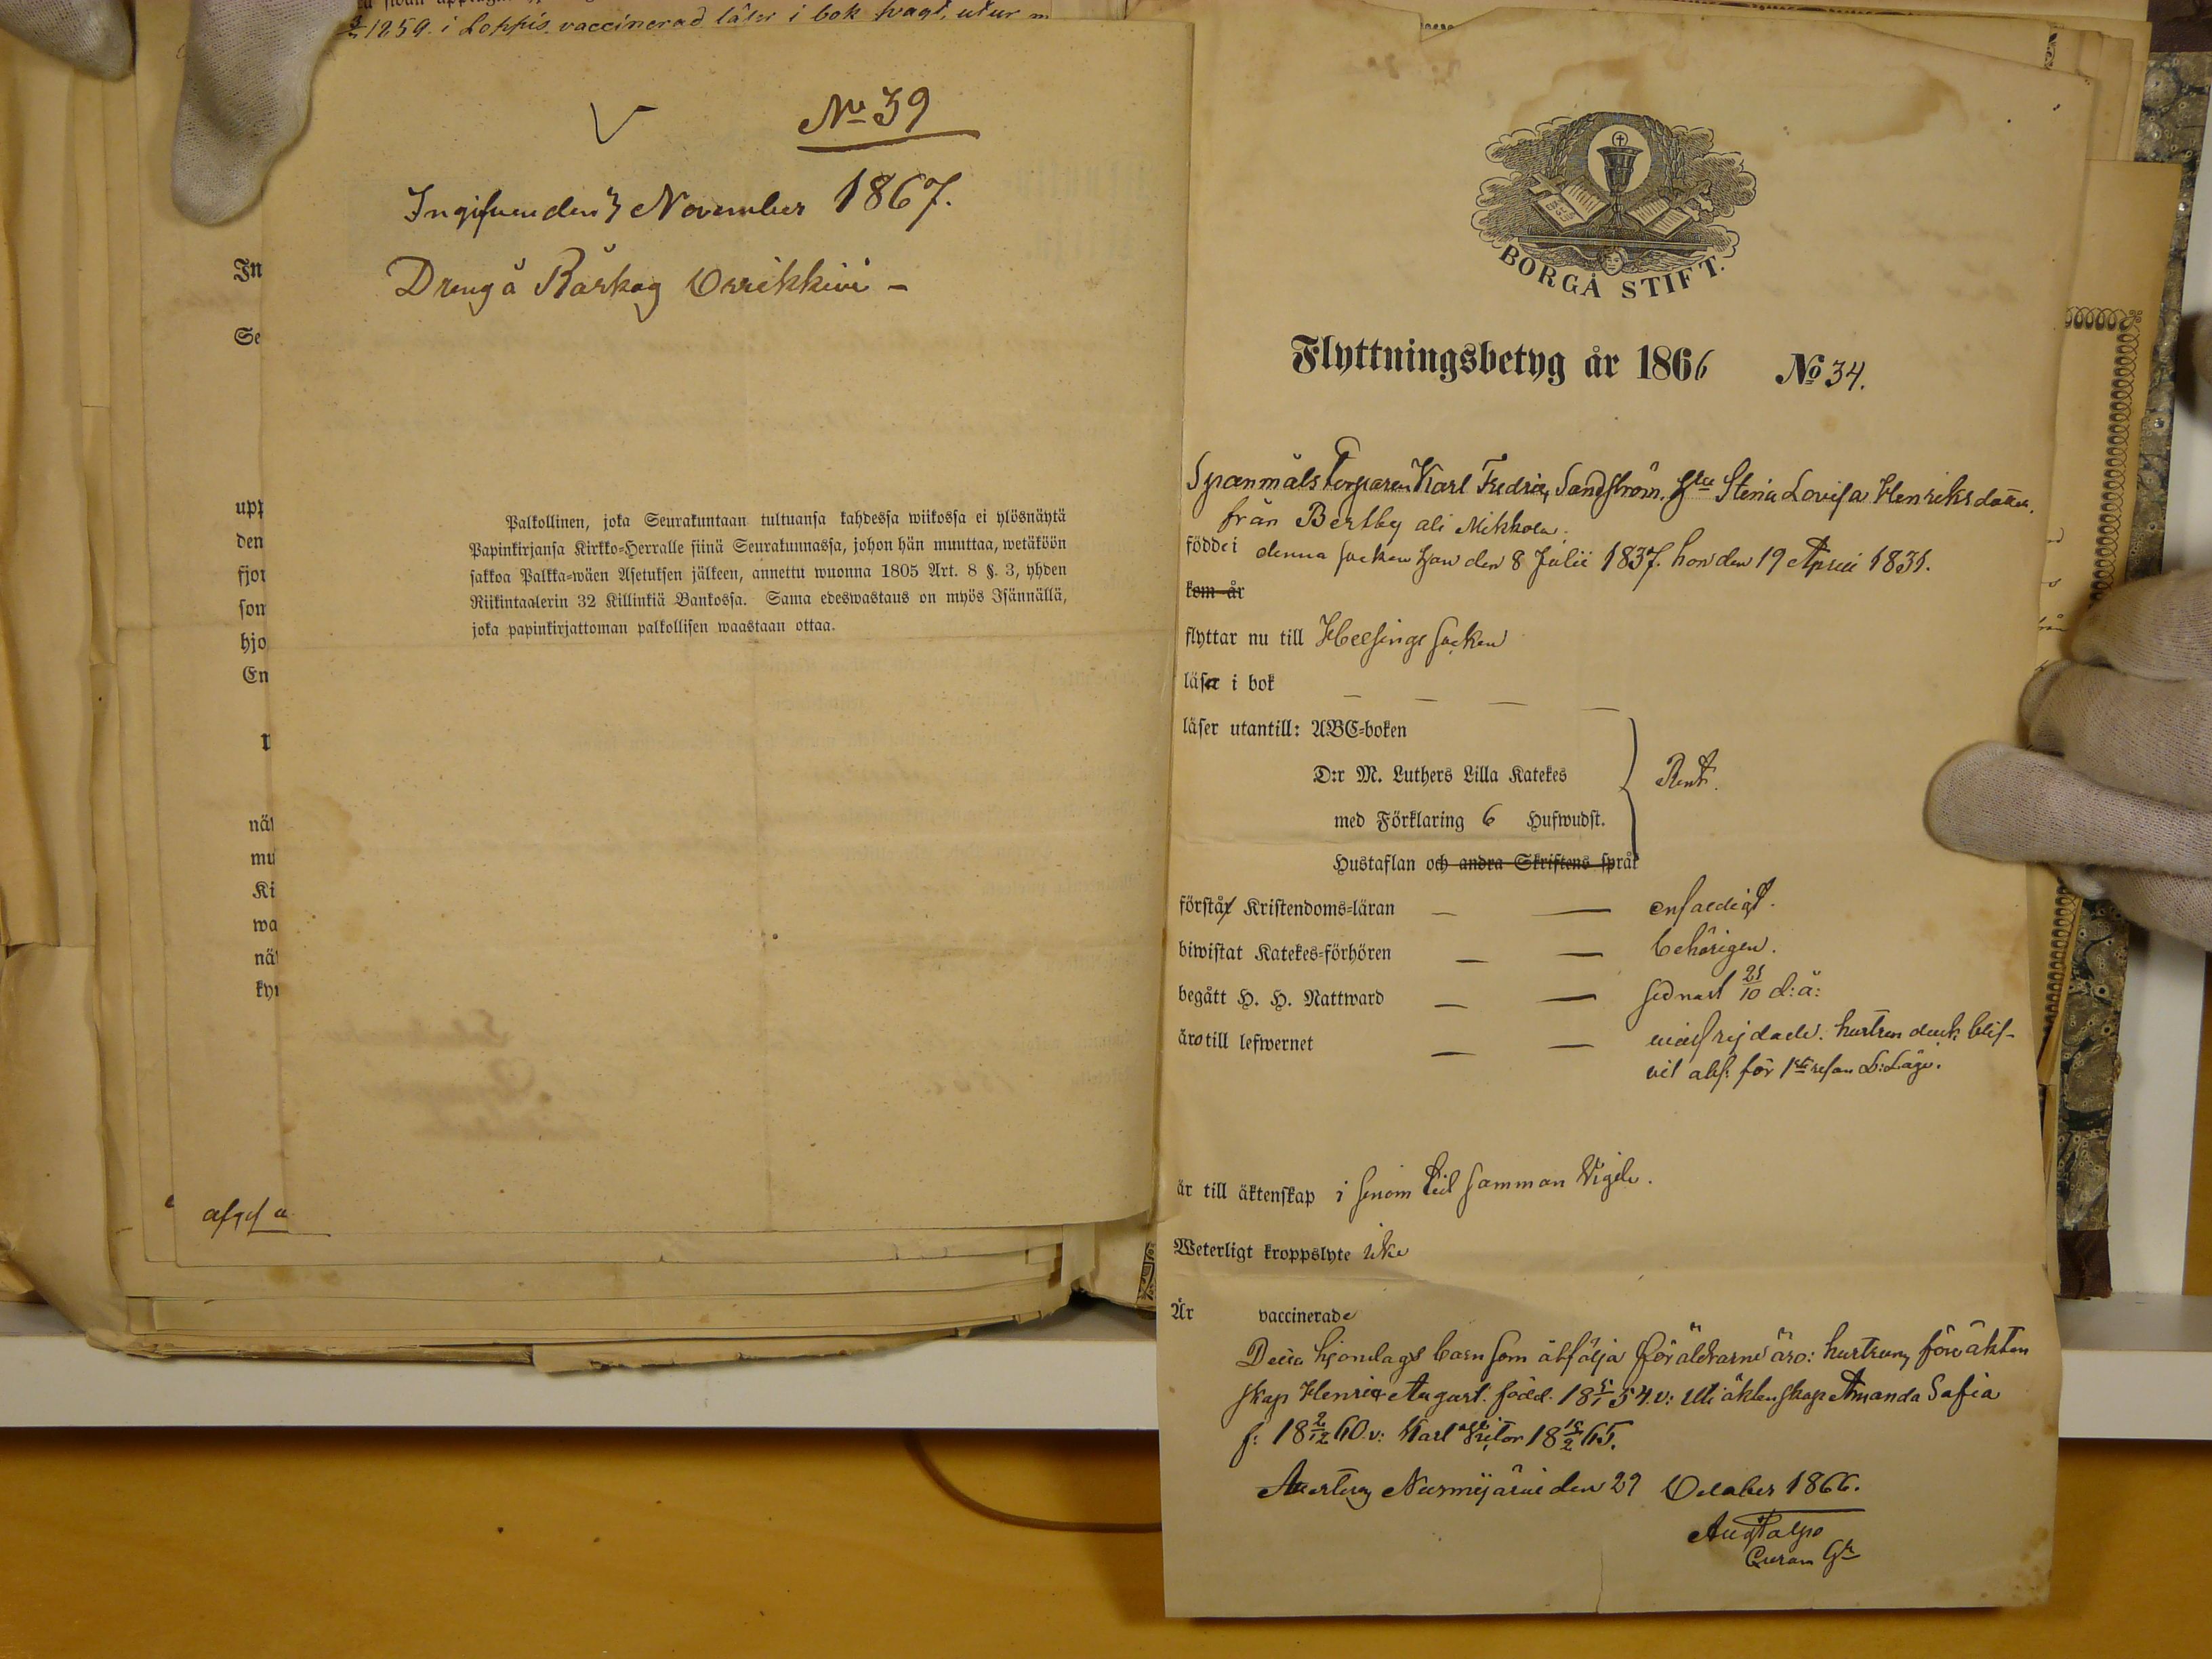 1859. i Loppis, vaccinerad läser i bok svagt, utur
No 39
Ingifven den 3 November 1867.
Dreng å Råskog Orrikkivi –
In
Se
upp
den
fjor
som
hjo
En
Palkollinen, joka Seurakuntaan tultuansa kahdessa wiikossa ei ylösnäytä
Papinkirjansa Kirkko-Herralle siinä Seurakunnassa, johon hän muuttaa, wetäköön
sakkoa Palkka-wäen Asetuksen jälkeen, annettu wuonna 1805 Art. 8 §. 3, yhden
Riikintaalerin 32 Killinkiä Bankossa. Sama edeswastaus on myös Isännällä,
joka papinkirjattoman palkollisen waastaan ottaa.
nä
mu
Ki
wa
nä
ky
BORGÅ STIFT.
Flyttningsbetyg år 1866 No 34.
Spanmåls Torparen Karl Fredric Sandström, Hu Stina Lovisa Henriksdotter.
från Bertby ali Mikkola.
födde i denna socken han den 8 Julii 1837. hon den 19 April 1831.
kom år
flyttar nu till Helsinge Socken
läser i bok – – – –
läser utantill: ABC-boken
D:r M. Luthers Lilla Katekes Rent.
med Förklaring 6 Hufwudst.
Hustaflan och andra Skriftens språk
förstår Kristendoms-läran — — enfaldigt.
biwistat Katekes-förhören — — behörigen.
begått H. H. Nattward — — sednast 21/10 d: å:
äro till lefwernet — — oväldfrejdade. hustrun dock blif-
vit abs. för 1sta resan L: Läge.
är till äktenskap i genom tid samman Vigde.
Weterligt kroppslyte icke
Är vaccinerade
Dessa hjonelags barn som åtfölja föräldrarne äro: hustruns före äkten
skap Henric August född 18 5/1 54. v: uti äktenskap Amanda Sofia
f: 18 2/12 60. v: Karl Victor 18 15/2 65.
Attesteras Nurmijärvi den 29 October 1866.